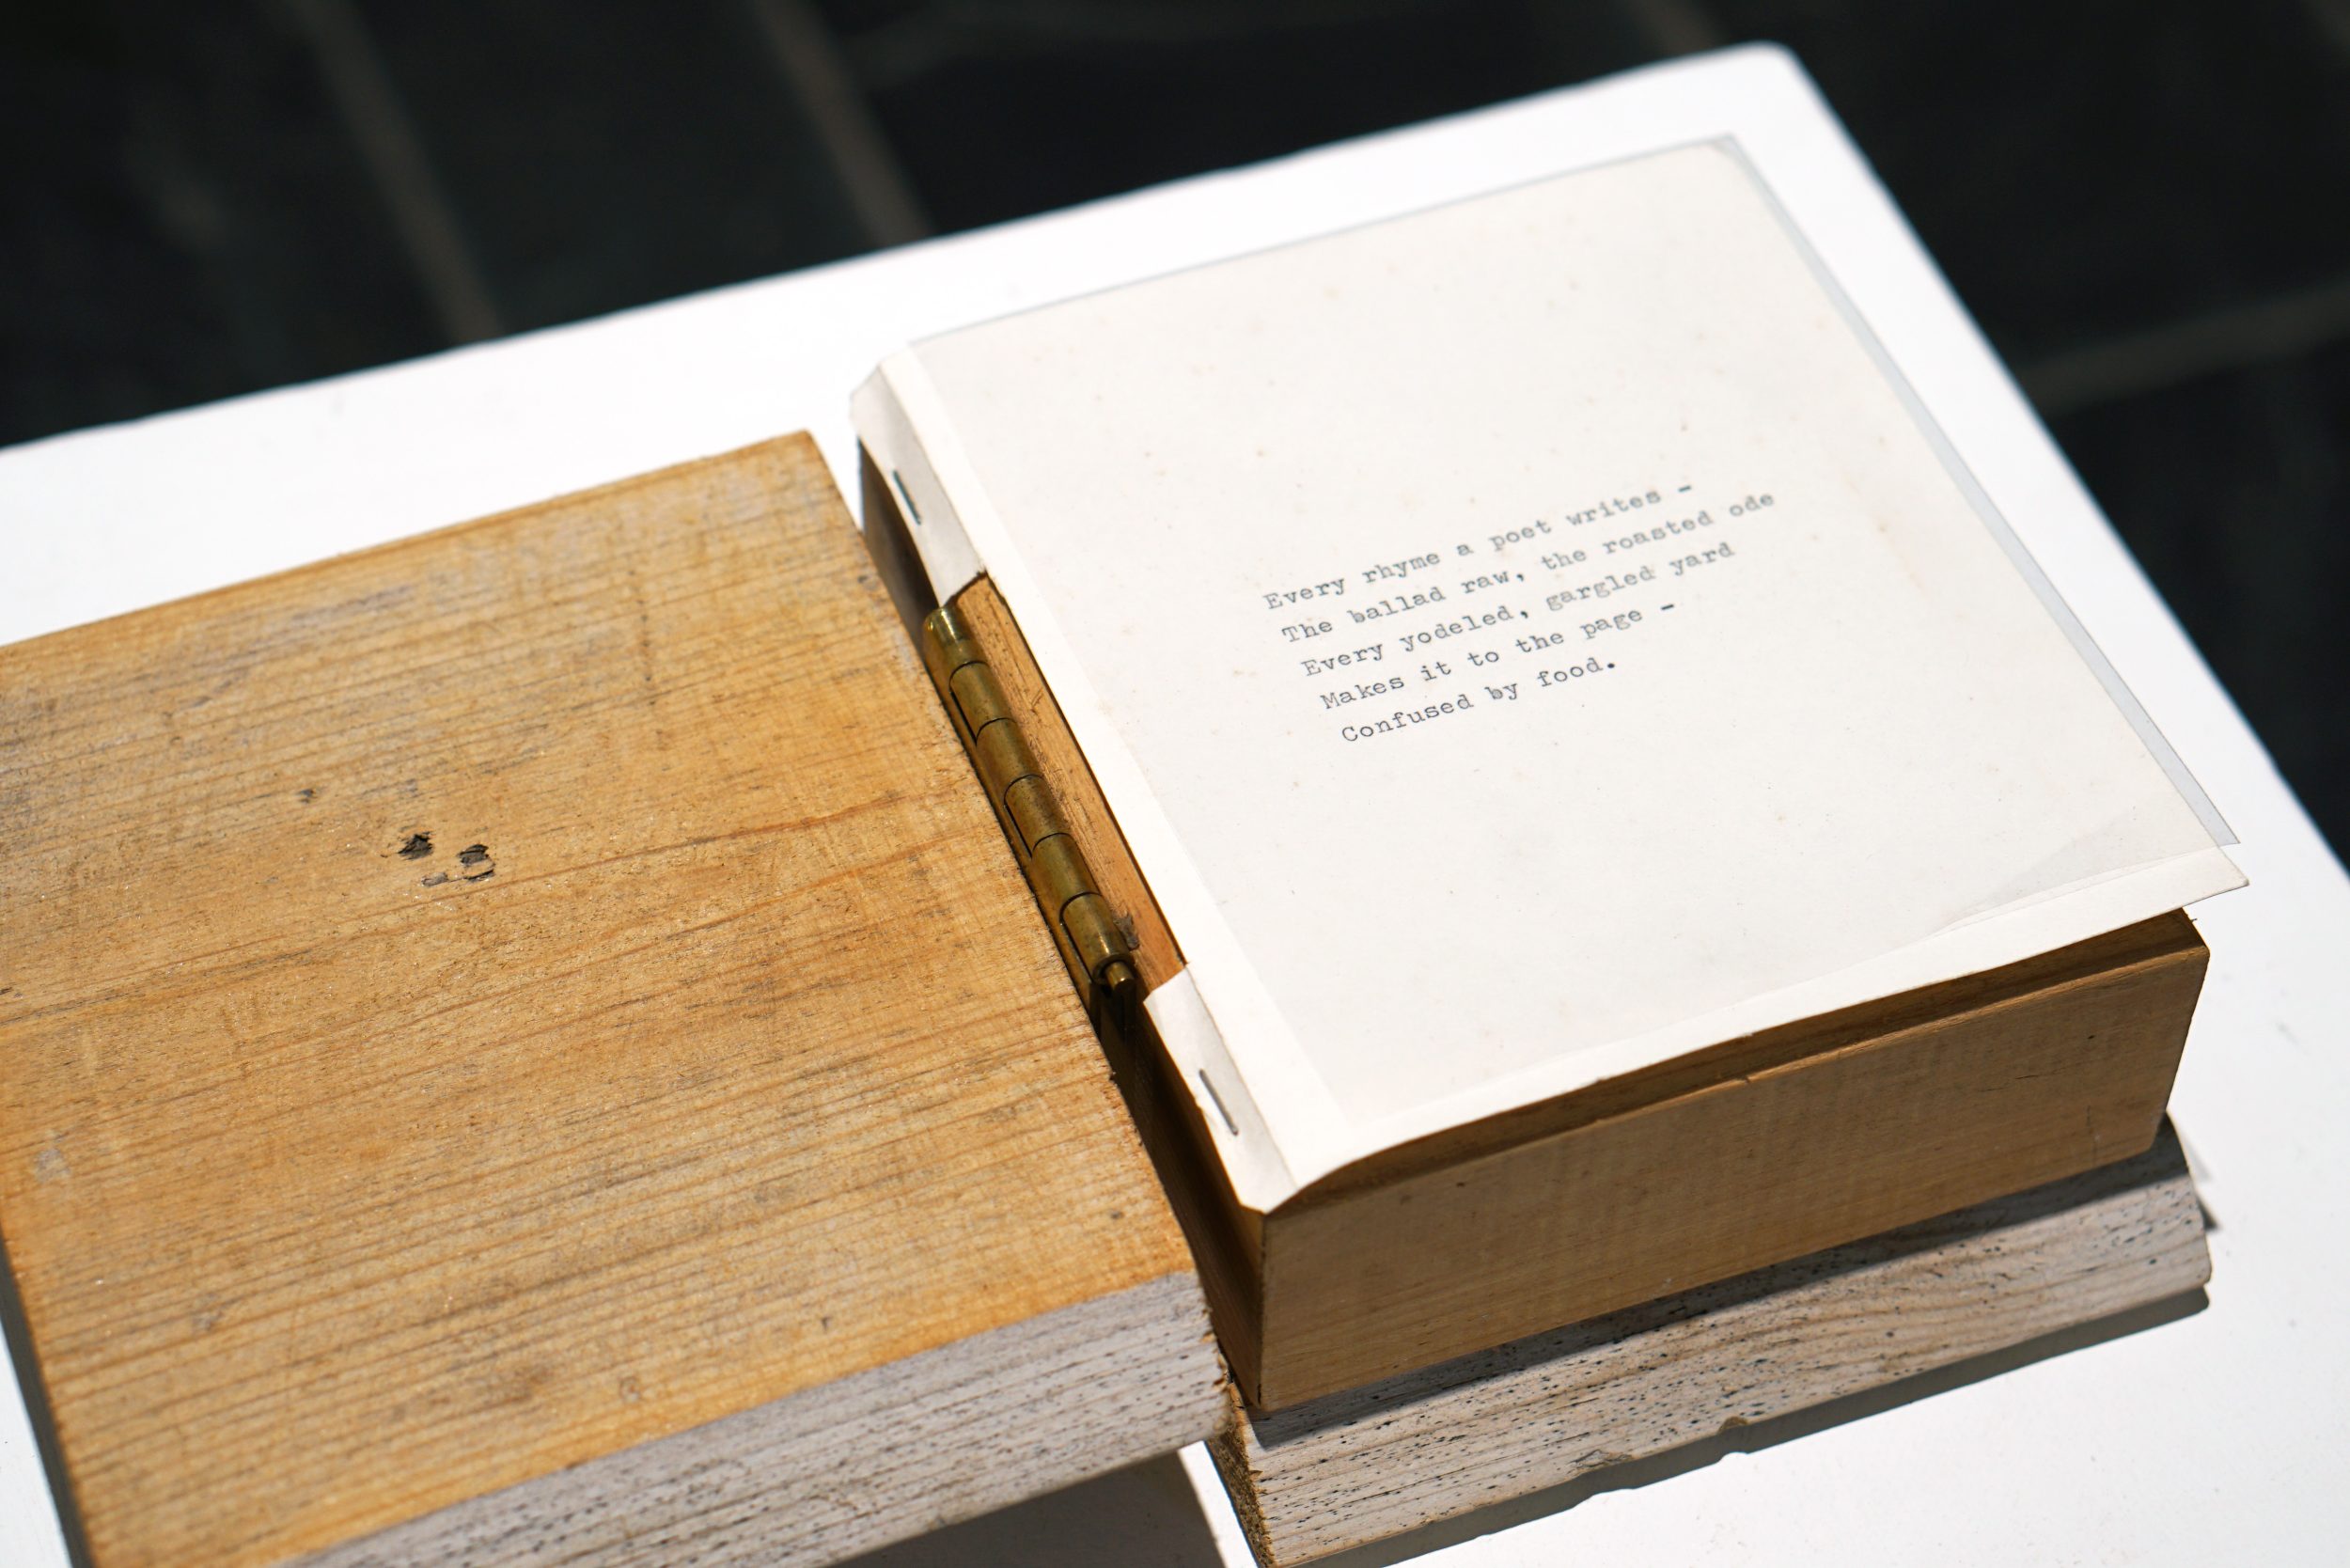 Every rhyme a poet writes -
The ballad raw, the roasted ode
Every yodeled, gargled yard
Makes it to the page -
Confused by food.